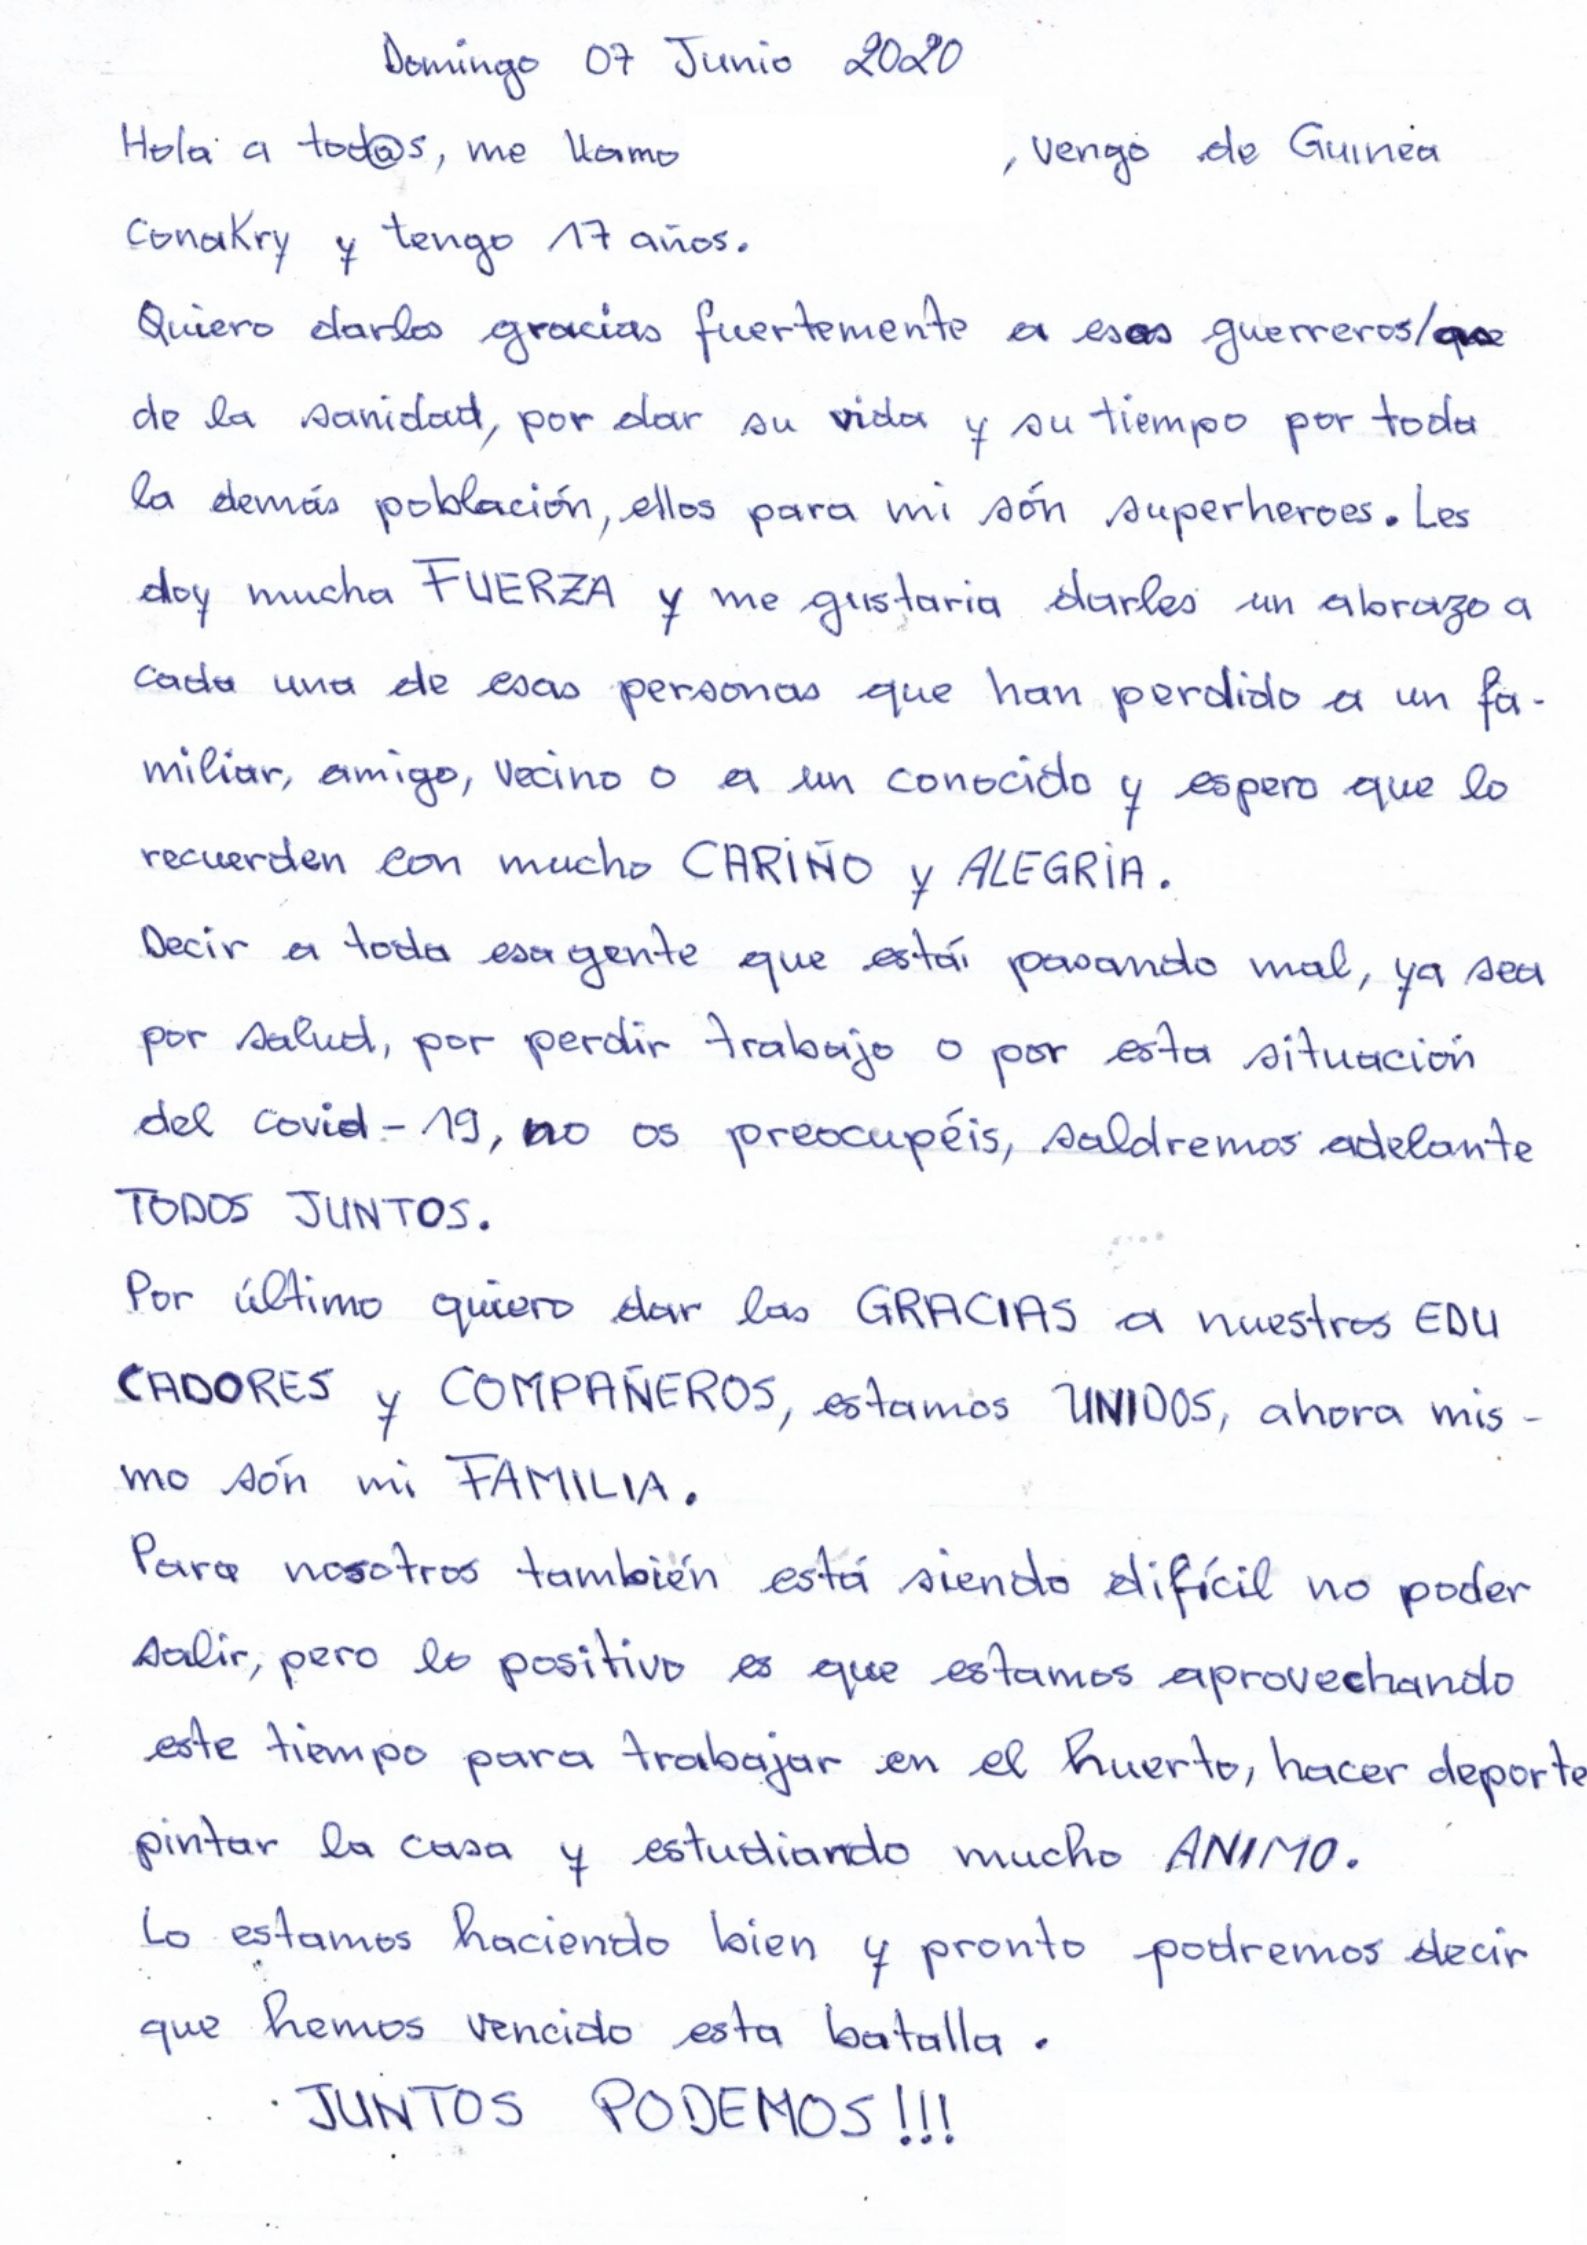 Domingo 07 Junio 2020
Hola a tod@s, me llamo , vengo de Guinea
Conakry y tengo 17 años.
Quiero darles gracias fuertemente a esos guerreros/as
de la sanidad, por dar su vida y su tiempo por toda
la demás población, ellos para mi són superheroes. Les
doy mucha FUERZA y me gustaria darles un abrazo a
cada una de esas personas que han perdido a un fa-
miliar, amigo, vecino o a un conocido y espero que lo
recuerden con mucho CARIÑO y ALEGRIA.
Decir a toda esa gente que está pasando mal, ya sea
por salud, por perdir trabajo o por esta situación
del covid-19, no os preocupéis, saldremos adelante
TODOS JUNTOS.
Por último quiero dar las GRACIAS a nuestros EDU
CADORES y COMPAÑEROS, estamos UNIDOS, ahora mis-
mo són mi FAMILIA.
Para nosotros también está siendo difícil no poder
salir, pero lo positivo es que estamos aprovechando
este tiempo para trabajar en el huerto, hacer deporte
pintar la casa y estudiando mucho ANIMO.
Lo estamos haciendo bien y pronto podremos decir
que hemos vencido esta batalla.
JUNTOS PODEMOS!!!